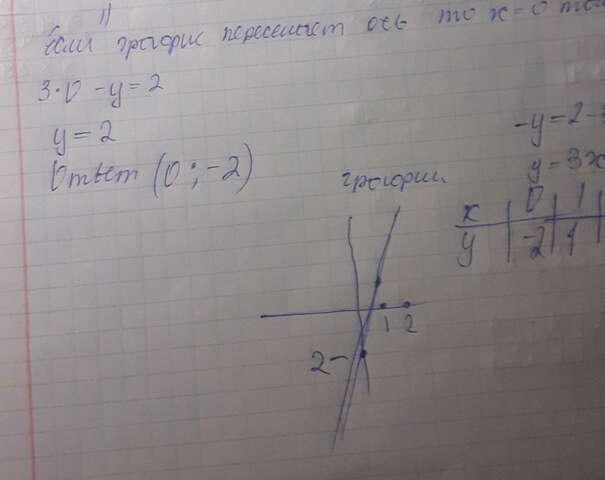 11
Если график пересекает ось то x=0
3·0 -y=2
y=2
Ответ (0;-2)
-y=2-
y=3x
график
x | 0 | 1 |
y | -2 | 1 |
1 2
2-